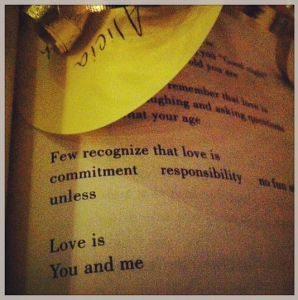 Alicia
you "Good night"
old you are
remember that love is
laughing and asking questions
hat your age
Few recognize that love is
commitment responsibility no fun
unless
Love is
You and me